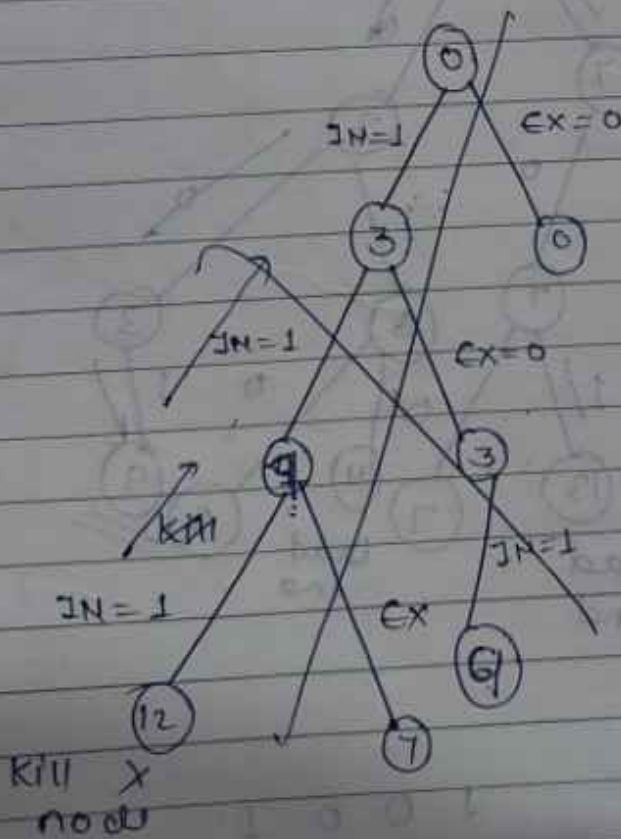 0
IN=1 EX=0
3 0
IN=1 EX=0
3
IN=1
IN = 1 EX
12 7
Kill X
node